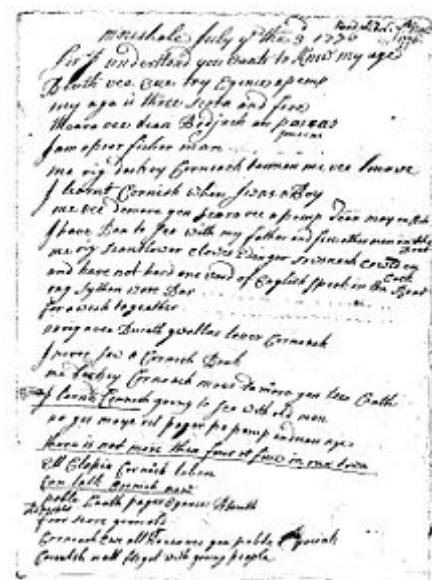 moushole July ye the 3 1776
Sir I understand you wants to know my age
Bluth vee Eue try Egence a pemp
my age is three score and five
Theara vee dean Bodjack an poscas
poscas
I am a poor fisher man
me rig deskey Cornoack termen me vee
I learnt Cornish when I was a Boy
me vee demore gen seara vee a pemp dean moy en
I have Ben to sea with my father and five other men in the
Boat
me rig scantlower clowes Edenger sowsnack cowes en
and have not hard one word of English spoak in the Boat
rag sythen ware Bar
for a week together
no rig avee Biscath gwellas lever Cornoack
I never saw a Cornish Book
me deskey Cornoack moas da more gen tees Coath
I learnt Cornish going to sea with old men
no gez moye vel pager po pemp
there is not more then four or five in our town
Ell Clapia Cornish leben
Can talk Cornish now
poble Coath pager Egence Blouth
four score years old
Cornoack Ewe all
Cornish is all forgot with young people